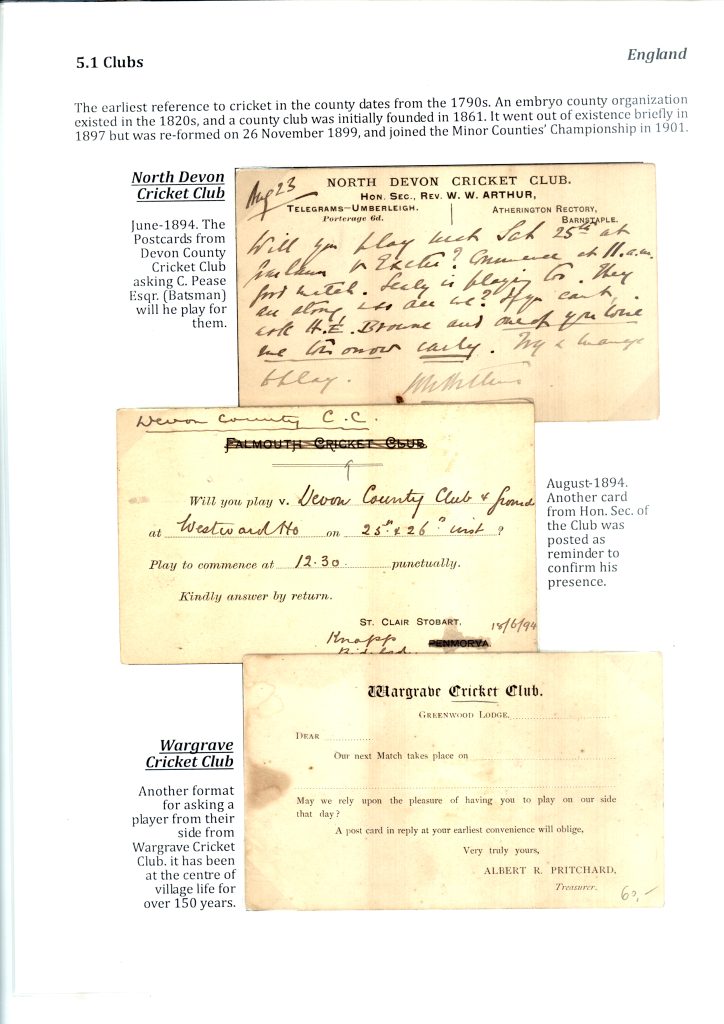 5.1 Clubs
England
The earliest reference to cricket in the county dates from the 1790s. An embryo county organization
existed in the 1820s, and a county club was initially founded in 1861. It went out of existence briefly in
1897 but was re-formed on 26 November 1899, and joined the Minor Counties' Championship in 1901.
North Devon
Cricket Club
June-1894. The
Postcards from
Devon County
Cricket Club
asking C. Pease
Esqr. (Batsman)
will he play for
them.
Aug 23
NORTH DEVON CRICKET CLUB.
HON. SEC., REV. W. W. ARTHUR,
TELEGRAMS—UMBERLEIGH.
Porterage 6d.
ATHERINGTON RECTORY,
BARNSTAPLE.
Will you play next Sat 25th at
v Exeter? Commence at 11.a.m.
good match. is playing too. They
are strong are we? If you can't
ask H.E. Browne and one of you wire
me early. Try & manage
to play.
Devon County C.C.
FALMOUTH CRICKET CLUB
Will you play v. Devon County Club & Ground
at Westward Ho on 25th & 26th inst ?
Play to commence at 12.30 punctually.
Kindly answer by return.
ST. CLAIR STOBART,
18/6/94
Knapp
PENMORVA.
August-1894.
Another card
from Hon. Sec. of
the Club was
posted as
reminder to
confirm his
presence.
Wargrave
Cricket Club
Another format
for asking a
player from their
side from
Wargrave Cricket
Club. it has been
at the centre of
village life for
over 150 years.
Wargrave Cricket Club.
GREENWOOD LODGE,
DEAR
Our next Match takes place on
May we rely upon the pleasure of having you to play on our side
that day?
A post card in reply at your earliest convenience will oblige,
Very truly yours,
ALBERT R. PRITCHARD,
Treasurer.
60,-